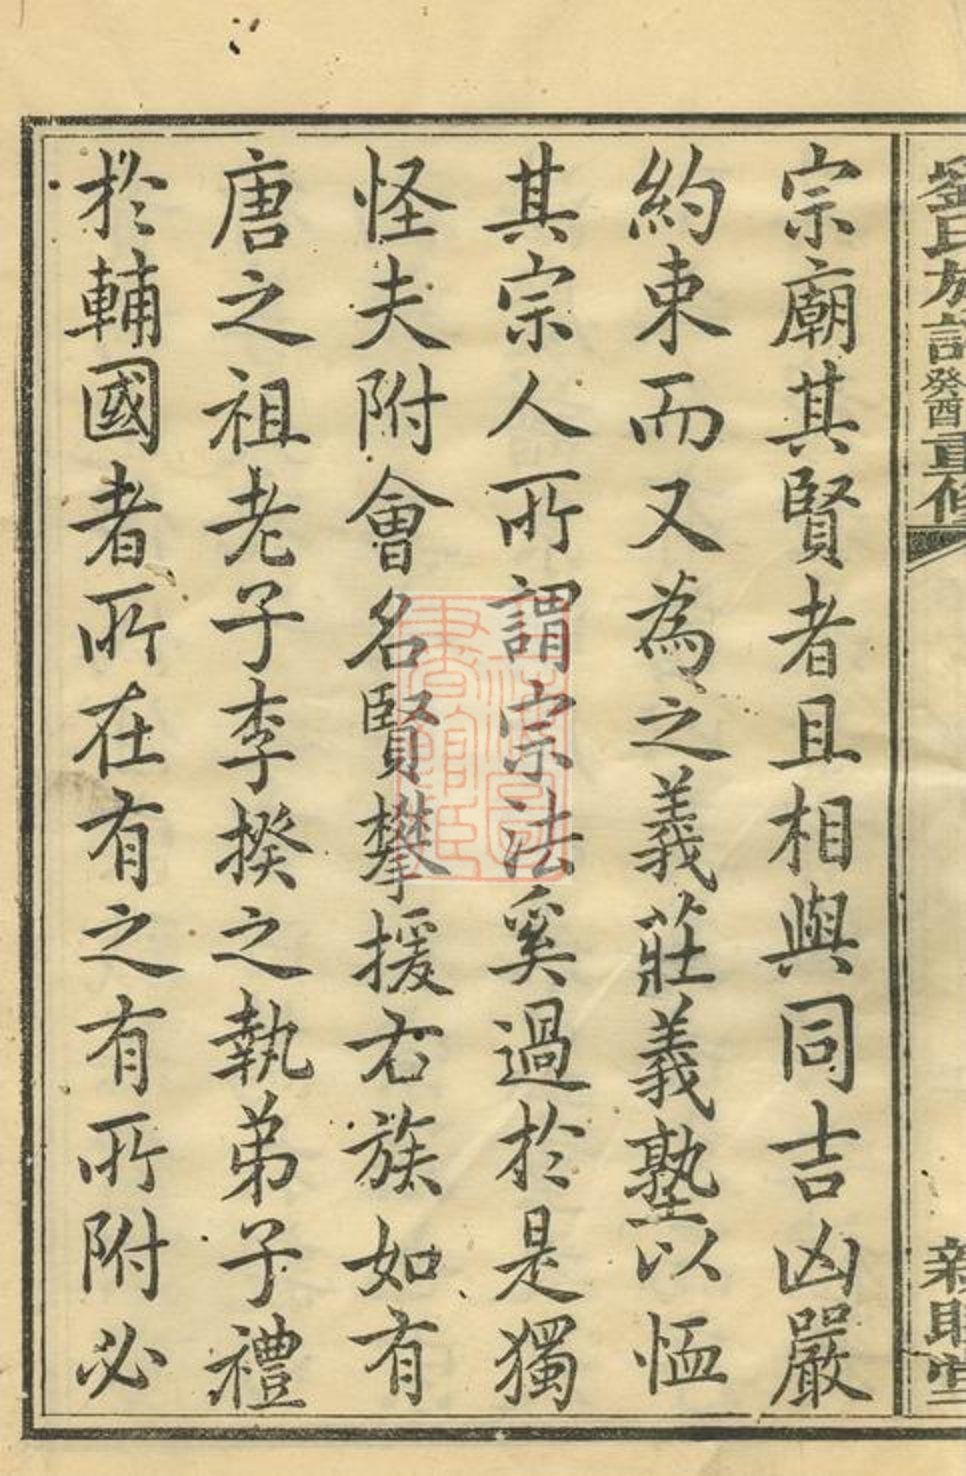 劉氏族譜癸酉重修
親睦堂
宗廟其賢者且相與同吉凶嚴
約束而又為之義莊義塾以恤
其宗人所謂宗法奚過於是獨
怪夫附會名賢攀援右族如有
唐之祖老子李揆之執弟子禮
於輔國者所在有之有所附必